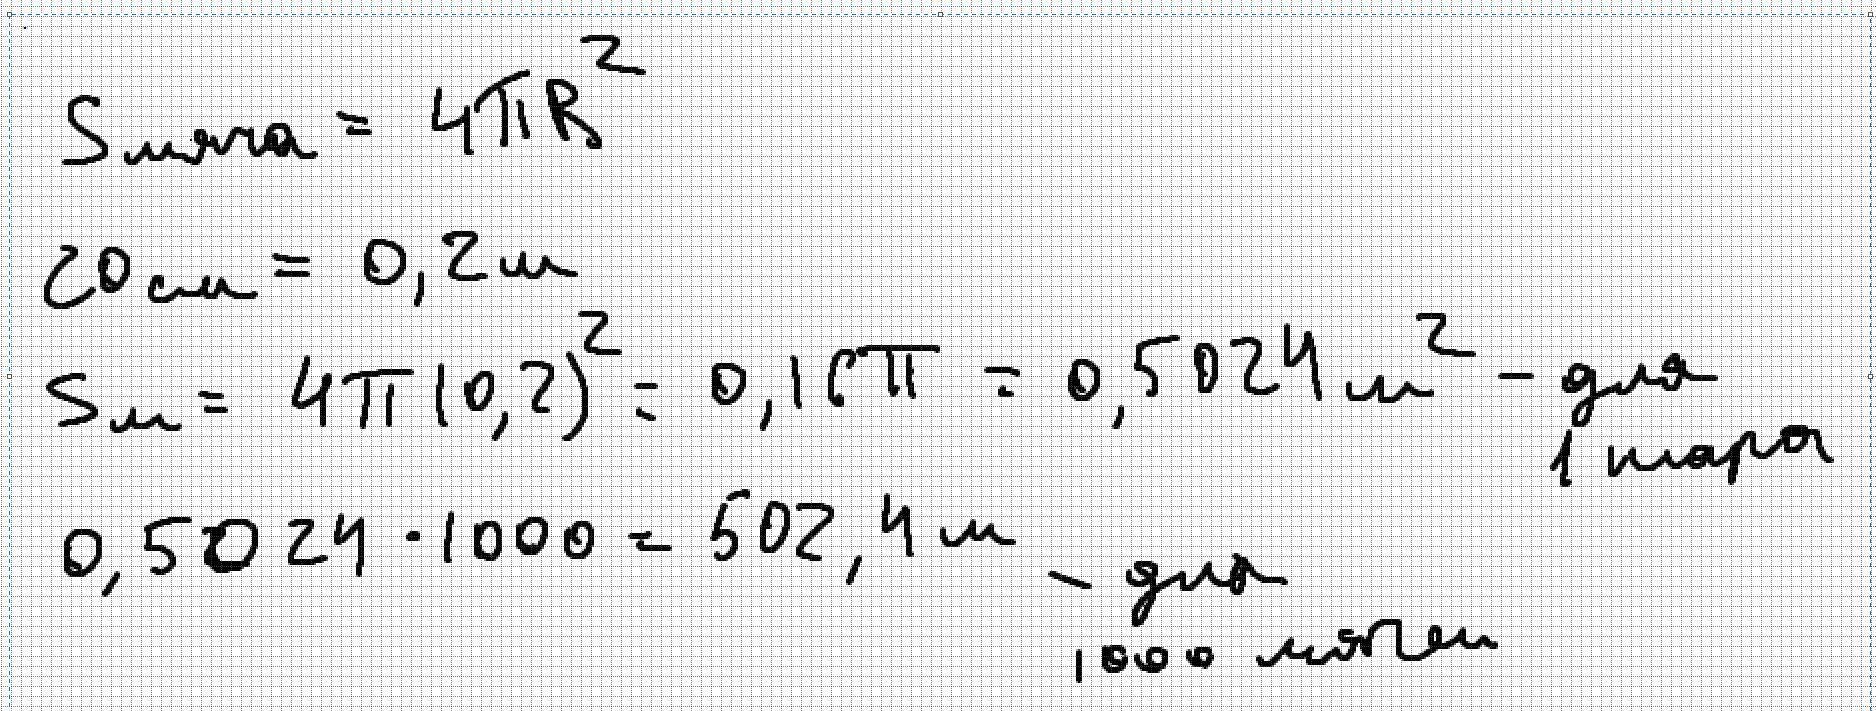 Sмяча = 4πR²
20 см = 0,2 м
Sм = 4π(0,2)² = 0,16π = 0,5024 м² - для
1 шара
0,5024·1000 = 502,4 м - для
1000 мячей